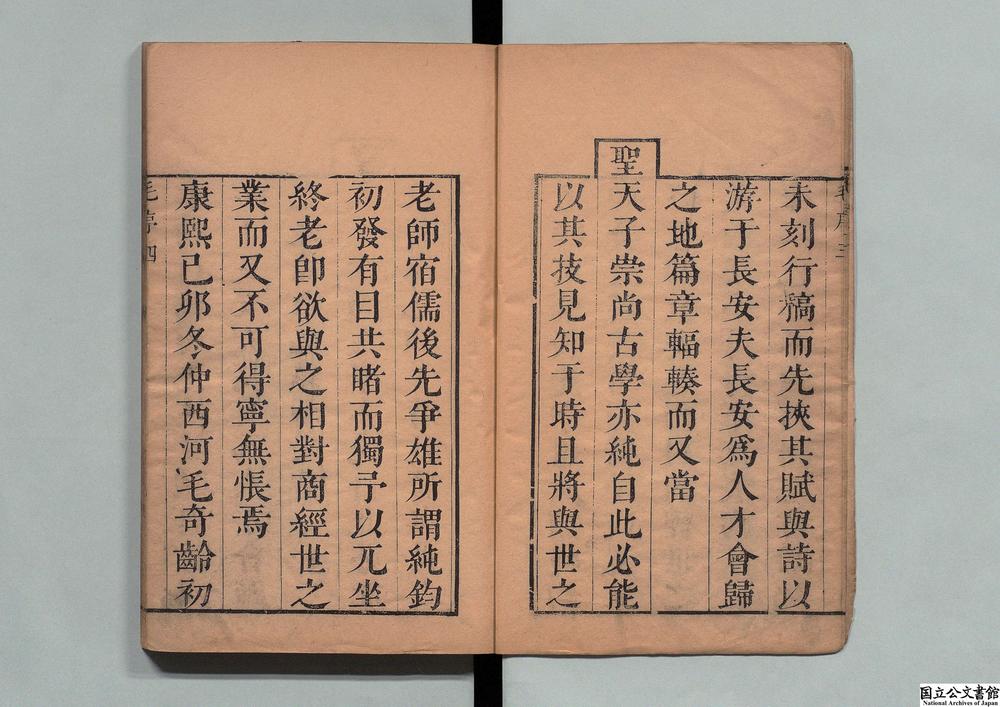 未刻行稿而先挾其賦與詩以
游于長安夫長安爲人才會歸
之地篇章輻輳而又當
聖
天子崇尚古學亦純自此必能
以其技見知于時且將與世之
老師宿儒後先爭雄所謂純鈞
初發有目共睹而獨予以兀坐
終老卽欲與之相對商經世之
業而又不可得寧無悵焉
康熙己卯冬仲西河毛奇齡初
毛序四
国立公文書館
National Archives of Japan